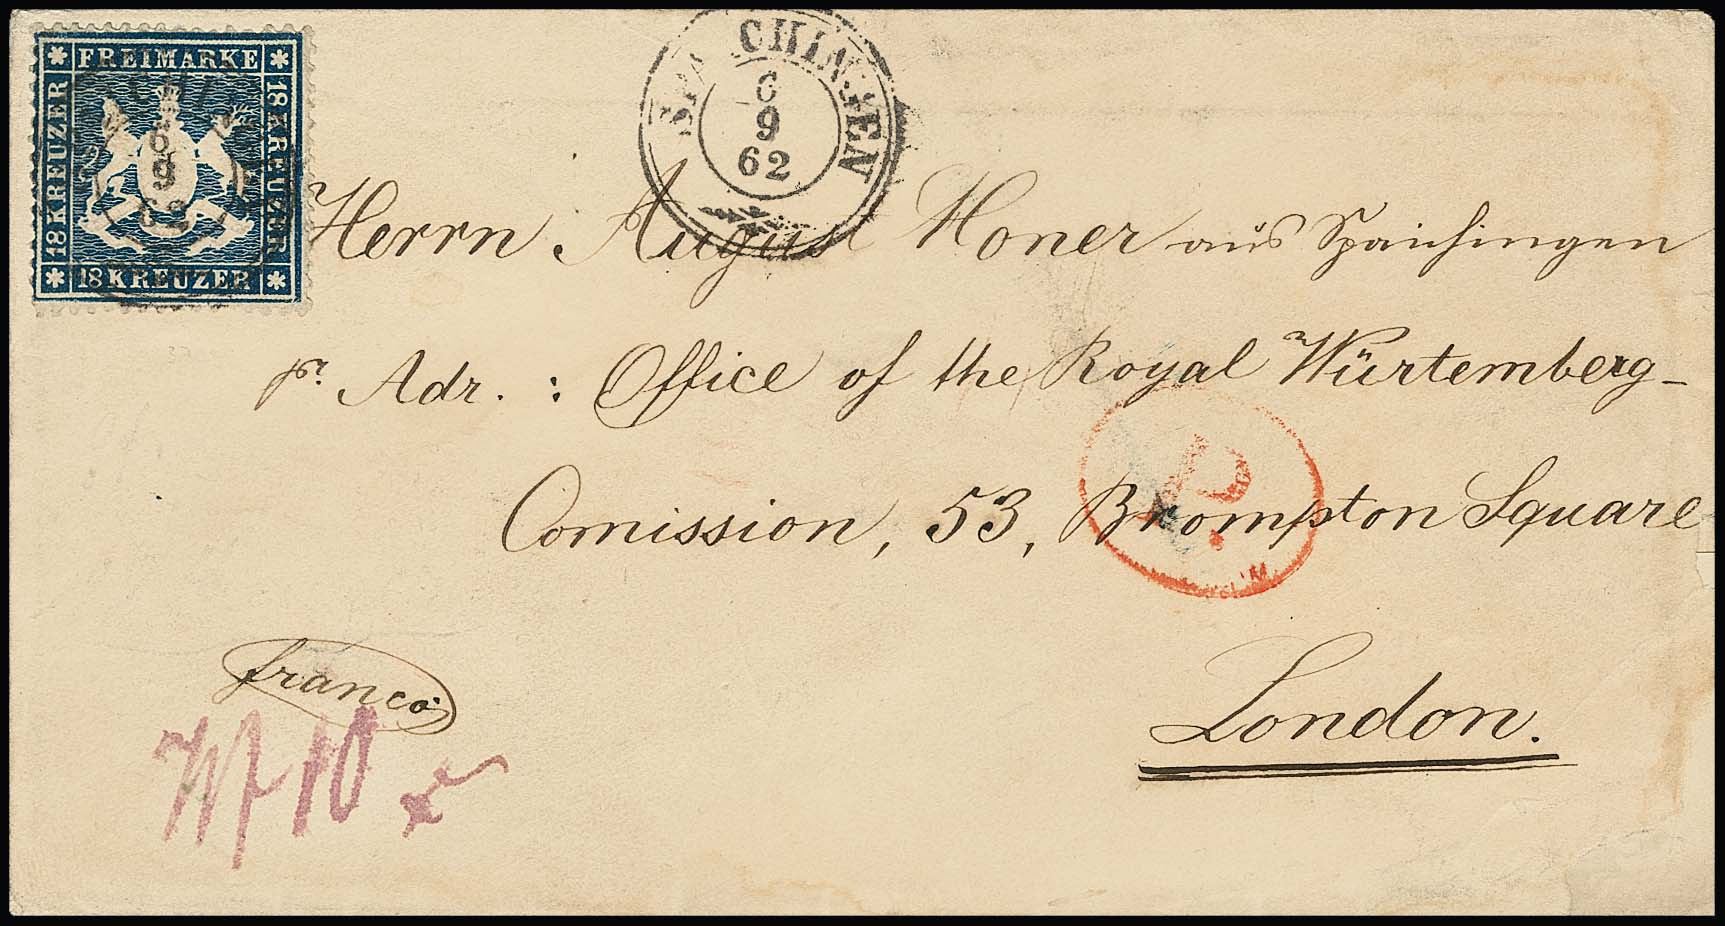 FREIMARKE
18 KREUZER
18 KREUZER
18 KREUZER
6
9
62
SPAICHINGEN
6
9
62
Herrn August Honer aus Spaichingen
pr. Adr. : Office of the Royal Würtemberg-
Comission, 53, Brompton Square
P.
London.
franco
10 x